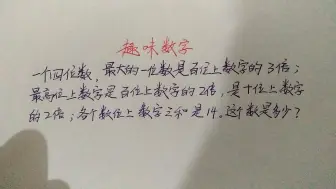 趣味数字
一个四位数，最大的一位数是百位上数字的3倍；
最高位上数字是百位上数字的2倍，是十位上数字
的2倍；各个数位上数字之和是14。这个数是多少？